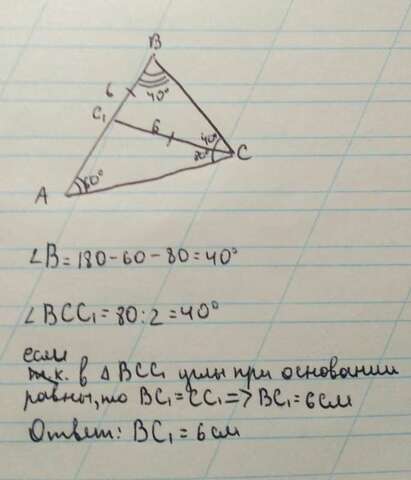 B
6
40°
C₁
6
40°
80°
C
A
60°
∠B = 180 - 60 - 80 = 40°
∠BCC₁ = 80 : 2 = 40°
если
в ∆ BCC₁ углы при основании
равны, то BC₁ = CC₁ => BC₁ = 6 см
Ответ: BC₁ = 6 см